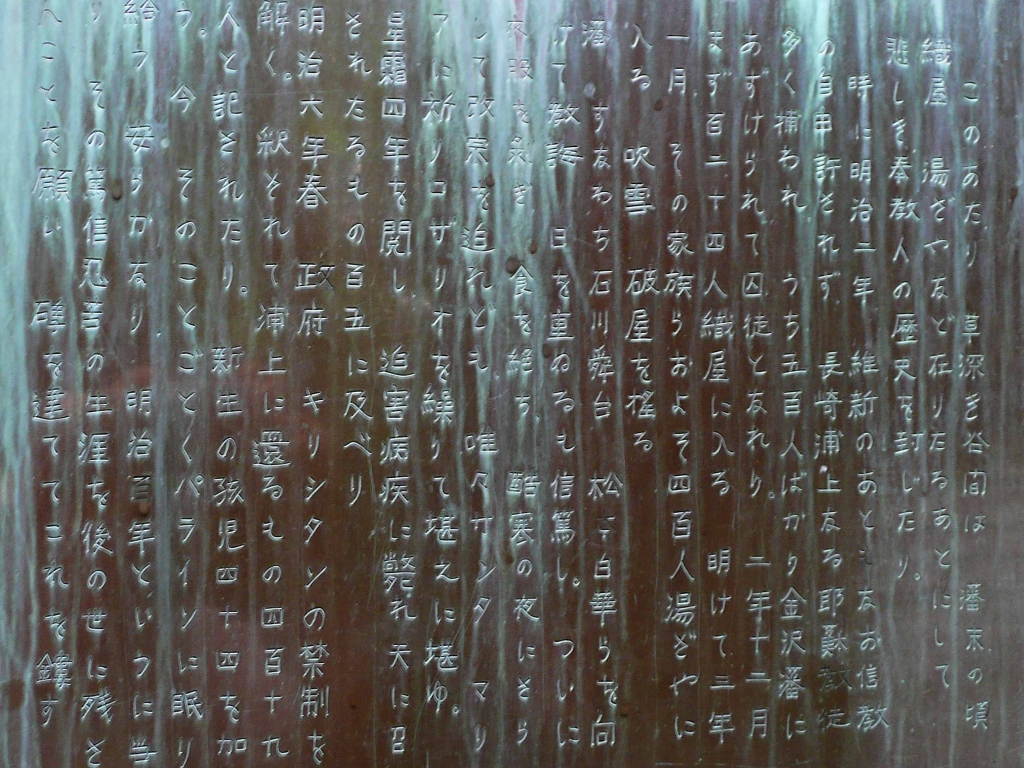 このあたり 草深き谷間は 藩末の頃
織屋 湯ざやなど在りたるあとにして
悲しき奉教人の歴史を封じたり。
時に明治二年 維新のあともなお信教
の自由許されず 長崎浦上なる耶蘇教徒
多く捕われ うち五百人ばかり金沢藩に
あずけられて囚徒となれり。二年十二月
まず百二十四人織屋に入る 明けて三年
一月 その家族らおよそ四百人湯ざやに
入る 吹雪 破屋を揺る
藩 すなわち石川舜台 松本白華らを向
けて教誨 日を重ぬるも信篤し。ついに
衣服を剥ぎ 食を絶ち 酷寒の夜にさら
して改宗を迫れども 唯々サンタ マリ
アに祈りロザリオを繰りて堪えに堪ゆ。
星霜四年を閲し 迫害病疾に斃れ天に召
されたるもの百五に及べり
明治六年春 政府 キリシタンの禁制を
解く。釈されて浦上に還るもの四百十九
人と記されたり。新生の孩児四十四を加
う。今 そのことごとくパラインに眠り
給う 安らかなり 明治百年というに当
り その篤信忍苦の生涯を後の世に残さ
んことを願い 碑を建ててこれを鏤す